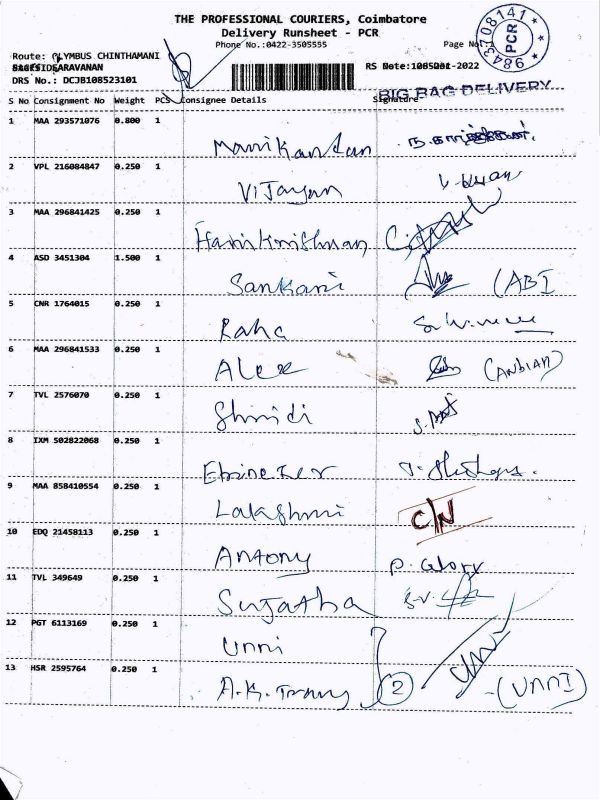 THE PROFESSIONAL COURIERS, Coimbatore
Delivery Runsheet - PCR
Phone No.:0422-3505555
Page No:
9843708141
PCR
Route: OLYMBUS CHINTHAMANI
SARAVANAN
DRS No.: DCJB108523101
RS Date:
-2022
BIG BAG DELIVERY
S No Consignment No Weight PCS Consignee Details Signature
1 MAA 293571076 0.800 1 Manikandan
2 VPL 216084847 0.250 1 Vijayan
3 MAA 296841425 0.250 1 Harikrishnan
4 ASD 3451304 1.500 1 Sankari (ABI
5 CNR 1764015 0.250 1 Raha
6 MAA 296841533 0.250 1 Alex (ANBIAH)
7 TVL 2576070 0.250 1 Shridi
8 IXM 502822068 0.250 1 Ebinezer
9 MAA 858410554 0.250 1 Lakashmi C/N
10 EDQ 21458113 0.250 1 Antony P. Glory
11 TVL 349649 0.250 1 Sujatha
12 PGT 6113169 0.250 1 Unni
13 HSR 2595764 0.250 1 A.K. Trany 2 (UNNI)